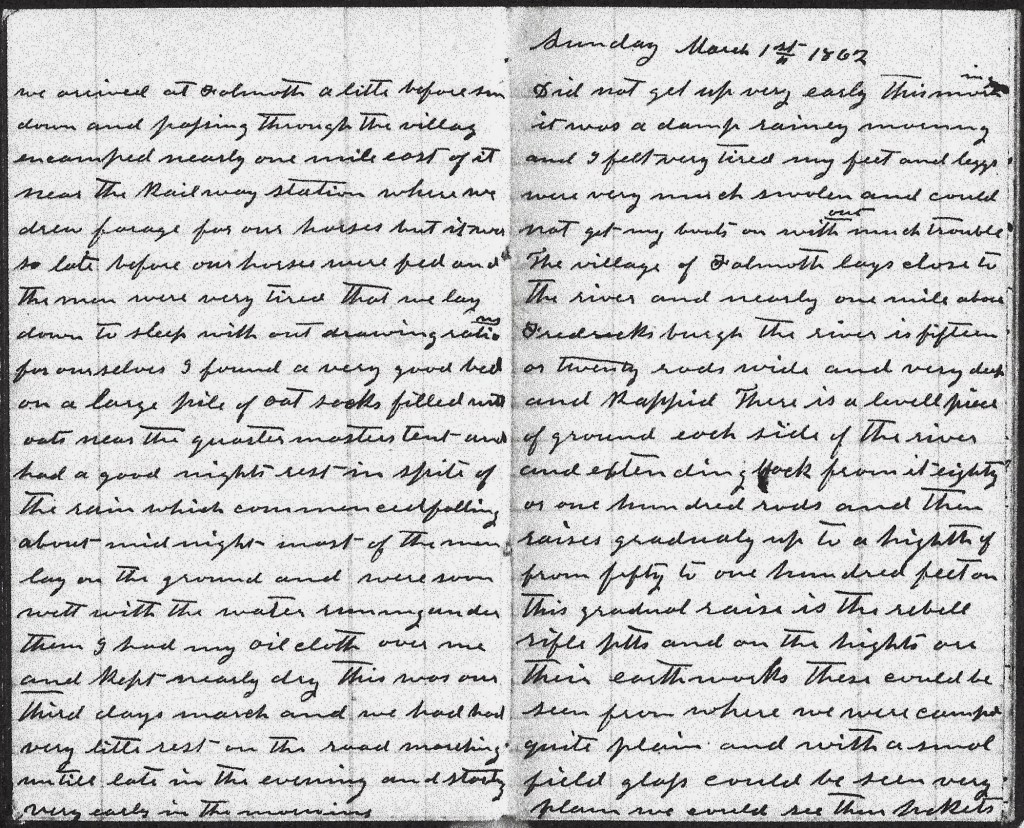 we arrived at Falmoth a little before sun
down and passing through the villag
encamped nearly one mile east of it
near the Railway station where we
drew forage for our horses but it was
so late before our horses were fed and
the men were very tired that we lay
down to sleep with out drawing rations
for ourselves I found a very good bed
on a large pile of oat sacks filled with
oats near the quarter masters tent and
had a good nights rest in spite of
the rain which commenced falling
about midnight most of the men
lay on the ground and were soon
wett with the water running under
them I had my oil cloth over me
and kept nearly dry this was our
third days march and we had had
very little rest on the road marching
untill late in the evening and starting
very early in the morning
Sunday March 1st 1862
Did not get up very early this morning
it was a damp rainey morning
and I felt very tired my feet and leggs
were very much swolen and could
not get my boots on without much trouble
The village of Falmoth lays close to
the river and nearly one mile above
Fredricksburgh the river is fifteen
or twenty rods wide and very deep
and Rappid There is a levell piece
of ground each side of the river
and extending back from it eighty
or one hundred rods and then
raises gradualy up to a highth of
from fifty to one hundred feet on
this gradual raise is the rebell
rifle pitts and on the hights are
their earthworks these could be
seen from where we were campd
quite plain and with a smal
field glass could be seen very
plain we could see their pickets